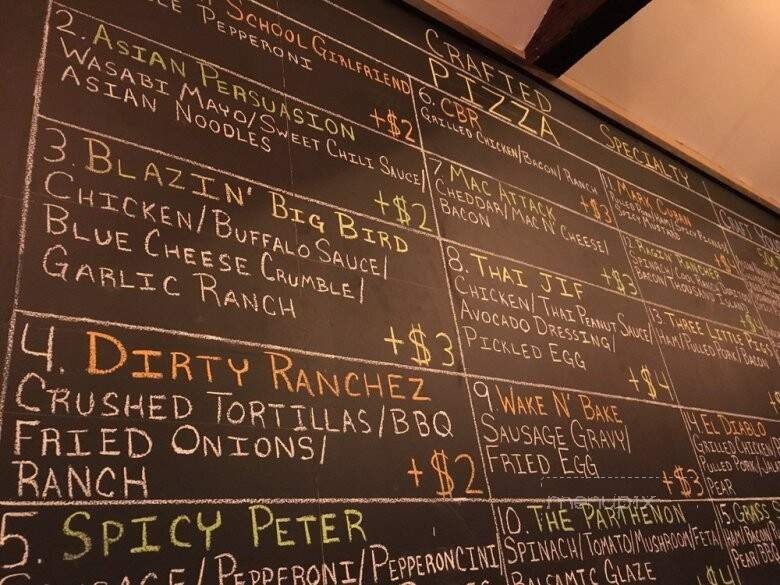 CRAFTED
PIZZA
SPECIALTY
SCHOOL GIRLFRIEND
PEPPERONI
+$2
2. ASIAN PERSUASION
WASABI MAYO/SWEET CHILI SAUCE/
ASIAN NOODLES
+$2
3. BLAZIN' BIG BIRD
CHICKEN/BUFFALO SAUCE/
BLUE CHEESE CRUMBLE/
GARLIC RANCH
+$3
4. DIRTY RANCHEZ
CRUSHED TORTILLAS/BBQ
FRIED ONIONS/
RANCH
+$2
5. SPICY PETER
/PEPPERONI/PEPPERONCINI
6. CBR
GRILLED CHICKEN/BACON/RANCH
+$3
7 MAC ATTACK
CHEDDAR/MAC N' CHEESE/
BACON
+$3
8. THAI JIF
CHICKEN/THAI PEANUT SAUCE/
AVOCADO DRESSING/
PICKLED EGG
+$4
9. WAKE N' BAKE
SAUSAGE GRAVY/
FRIED EGG
+$3
10. THE PARTHENON
SPINACH/TOMATO/MUSHROOM/FETA/
BALSAMIC GLAZE
1. MARK CUBAN
SPICY MUSTARD
2. RAGIN' RANCHER
3. THREE LITTLE PIGS
HAM/PULLED PORK/BACON
4. EL DIABLO
GRILLED CHICKEN
PULLED PORK/
PEAR
5. GRASS
HAM/BACON
menupix